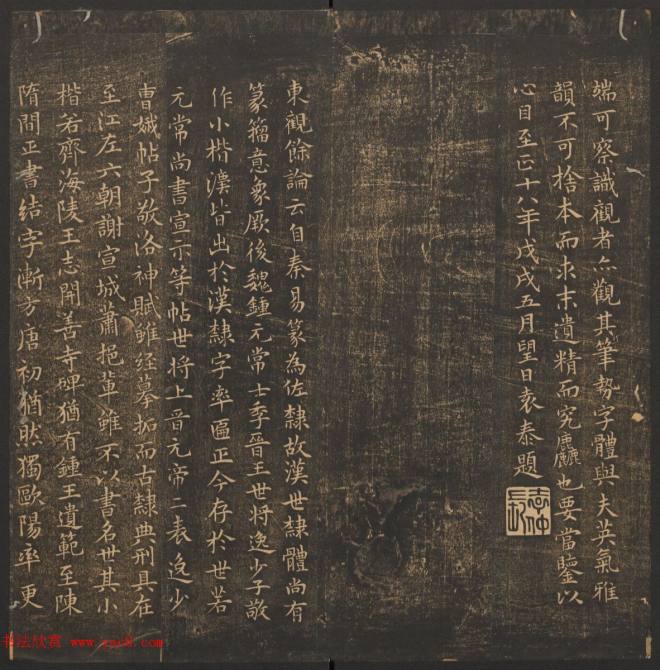 端可察識觀者亦觀其筆勢字體與夫英氣雅
韻不可捨本而求末遺精而究麤也要當鑒以
心目至正十八年戊戌五月望日袁泰題
東觀餘論云自秦易篆為佐隸故漢世隸體尚有
篆籀意象厥後魏鍾元常士季晉王世將逸少子敬
作小楷灋皆出於漢隸字率匾正今存於世若
元常尚書宣示等帖世將上晉元帝二表逸少
曹娥帖子敬洛神賦雖經摹拓而古隸典刑具在
至江左六朝謝宣城蕭挹輩雖不以書名世其小
楷若齊海陵王志開善寺碑猶有鍾王遺範至陳
隋間正書結字漸方唐初猶然獨歐陽率更
书法欣赏